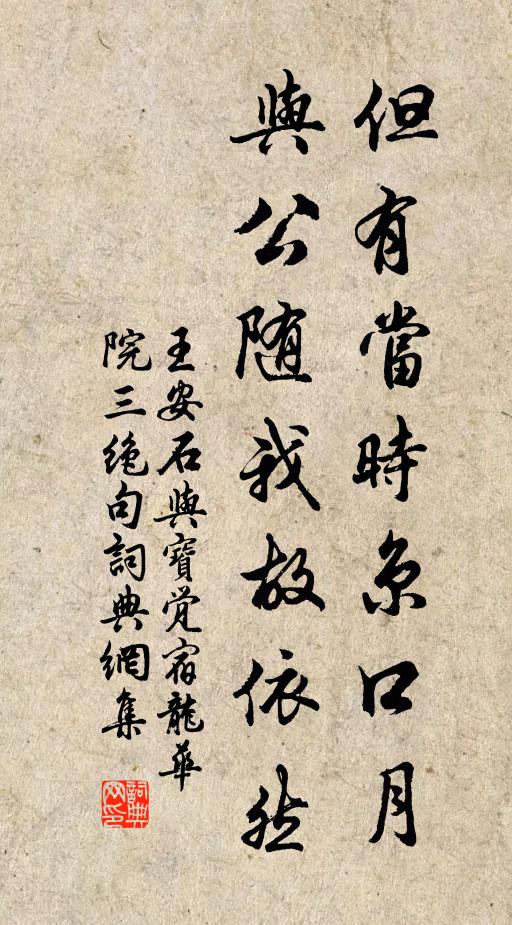 但有當時京口月
與公隨我故依然
王安石與寶覺宿龍華
院三絶句詞典網集
詞典
网印